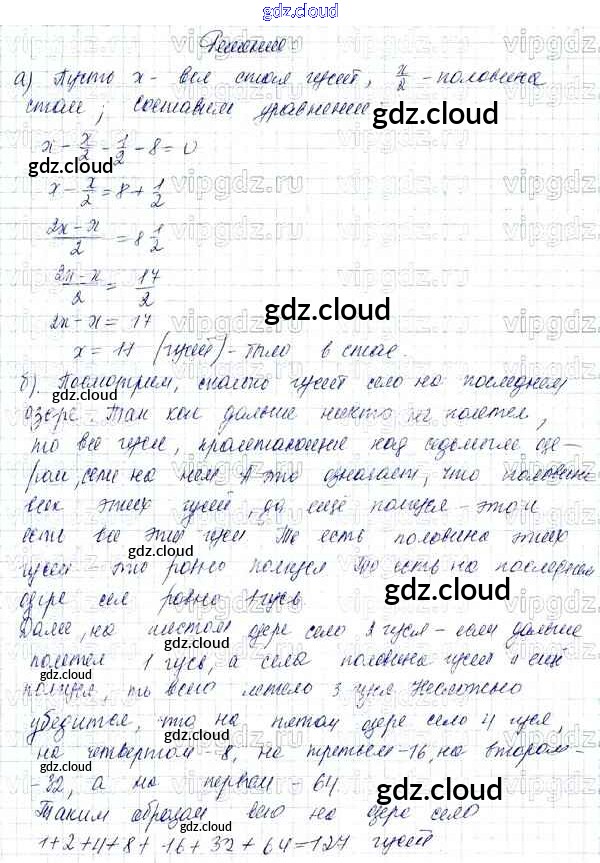 gdz.cloud
Решение
а) Пусть x - вся стая гусей, x/2 - половина
стаи; составим уравнение
gdz.cloud
x - x/2 - 1/2 - 8 = 0
x - x/2 = 8 + 1/2
(2x - x)/2 = 8 1/2
(2x - x)/2 = 17/2
gdz.cloud
2x - x = 17
x = 17 (гусей) - было в стае.
б). Посмотрим, сколько гусей село на последнем
озере. Так как дальше никто не полетел,
то все гуси, пролетающие над седьмым озе-
ром, сели на нем. А это означает, что половина
всех этих гусей, да ещё полгуся - это и
есть все эти гуси. То есть половина этих
gdz.cloud
гусей это равно полгуся. То есть на последнем
gdz.cloud
озере сел ровно 1 гусь.
Далее, на шестом озере село 2 гуся - если дальше
полетел 1 гусь, а села половина гусей и ещё
gdz.cloud
полгуся, то всего летело 3 гуся. Несложно
убедится, что на пятом озере село 4 гуся,
на четвертом - 8, на третьем - 16, на втором -
gdz.cloud
- 32, а на первом - 64.
gdz.cloud
Таким образом всего на озере село
gdz.cloud
1 + 2 + 4 + 8 + 16 + 32 + 64 = 127 гусей
vipgdz.ru